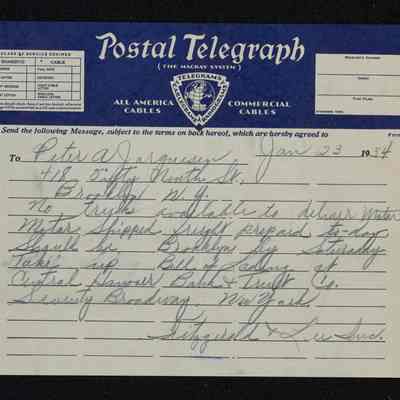 CLASS OF SERVICE DESIRED
DOMESTIC
CABLE
Postal Telegraph
(THE MACKAY SYSTEM)
TELEGRAMS
ALL AMERICA
CABLES
COMMERCIAL
CABLES
Send the following Message, subject to the terms on back hereof, which are hereby agreed to
To Peter A. Jorgensen, Jan 23 1934
418 Fifty Ninth St.
Brooklyn N.Y.
No trucks available to deliver Water
Motor Shipped freight prepaid to-day
Should be Brooklyn by Saturday
Take up Bill of Lading at
Central Hanover Bank & Trust Co.
Seventy Broadway, New York.
Fitzgerald & Lee Inc.